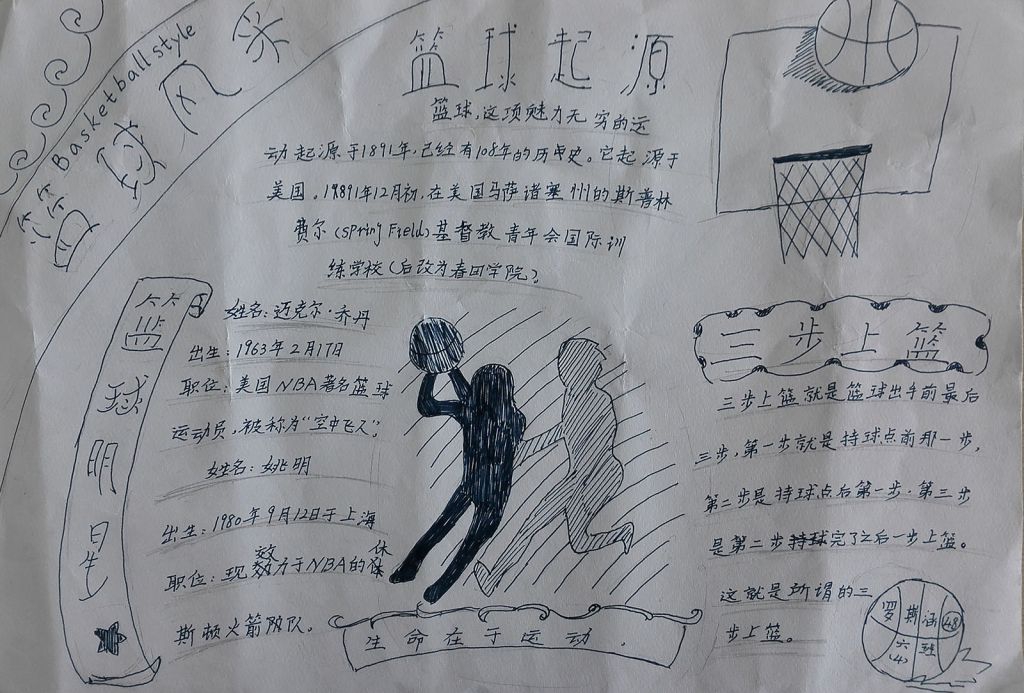 篮球风采
Basketball style
篮球起源
篮球,这项魅力无穷的运
动起源于1891年,已经有108年的历史。它起源于
美国。19891年12月初,在美国马萨诸塞州的斯普林
费尔(SpringField)基督教青年会国际训
练学校(后改为春田学院)
篮球明星
姓名:迈克尔·乔丹
出生:1963年2月17日
职位:美国NBA著名篮球
运动员,被称为"空中飞人"。
姓名:姚明
出生:1980年9月12日于上海
职位:现效力于NBA的休
斯顿火箭队。
生命在于运动.
三步上篮
三步上篮就是篮球出手前最后
三步,第一步就是持球点前那一步,
第二步是持球点后第一步.第三步
是第二步持球完了之后一步上篮。
这就是所谓的三
步上篮。
罗斯涵 48
六(4)班